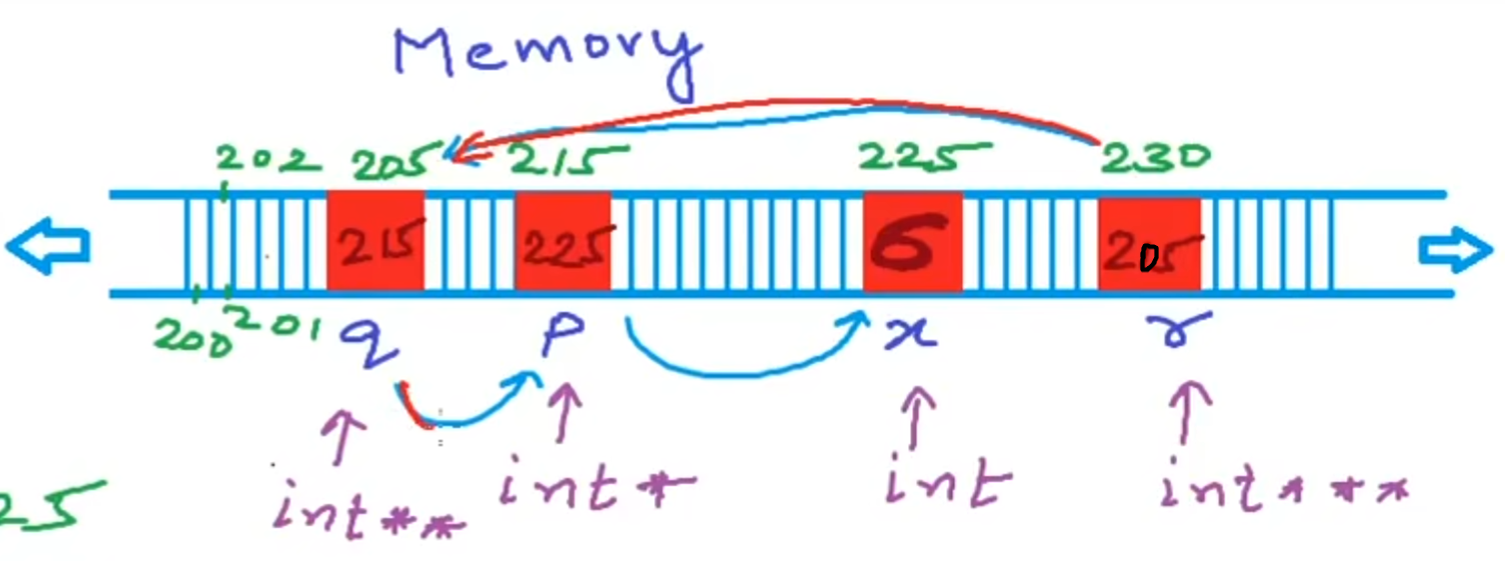 Memory
202 205 215 225 230
215 225 6 205
200 201 q p x r
int** int* int int***
25